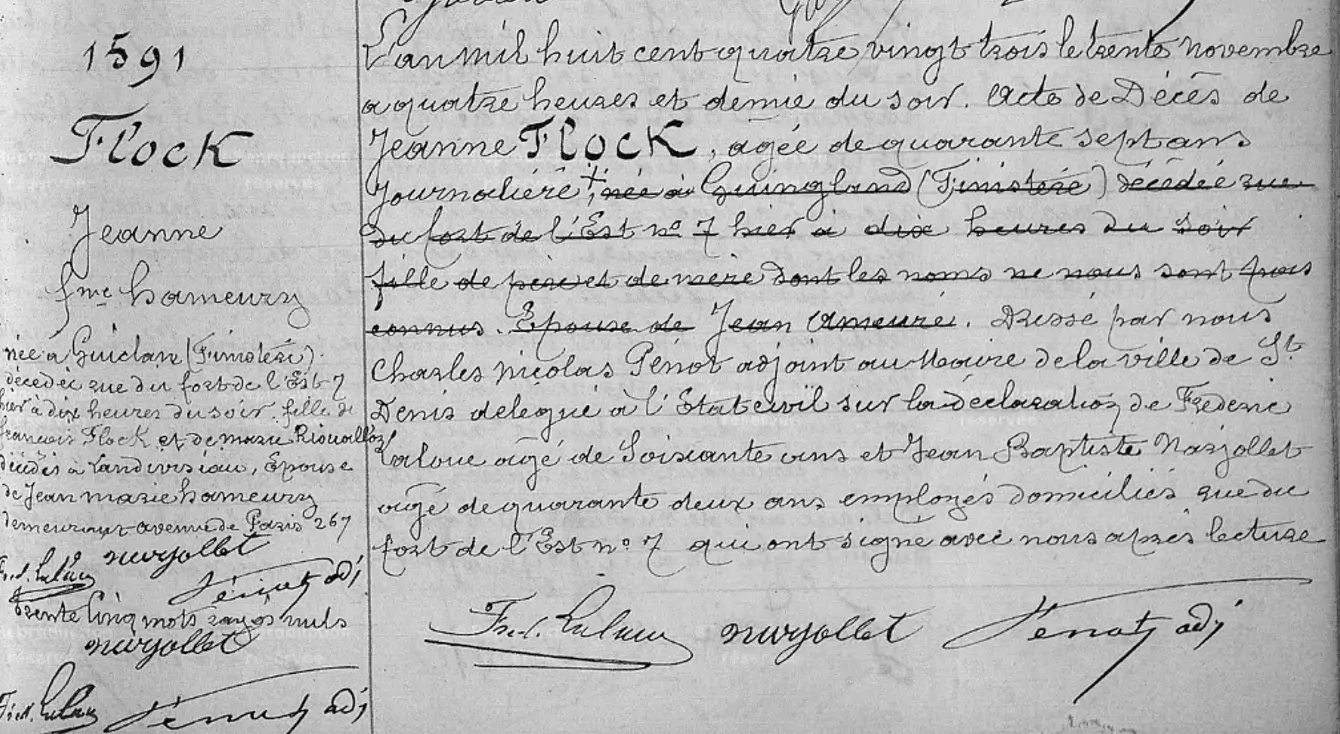 1591
Flock
Jeanne
fme hameury
née à Guiclan (Finistère).
décédée rue du fort de l'Est 7
hier à dix heures du soir. fille de
francois Flock et de marie Rioualloz
décédés à Landivisiau, Epouse
de Jean marie hameury
demeurant avenue de Paris 267
Fred. Lalou narjollet
Pénot adj
trente cinq mots rayés nuls
narjollet
Fred. Lalou Pénot adj
L'an mil huit cent quatre vingt trois le trente novembre
a quatre heures et demie du soir. Acte de Décès de
Jeanne FLOCK, agée de quarante sept ans
Journalière + née à Guingland (Finistère) décédée rue
du fort de l'Est no 7 hier à dix heures du soir
fille de père et de mère dont les noms ne nous sont pas
connus. Epouse de Jean Ameuré. Dressé par nous
Charles Nicolas Pénot adjoint au Maire de la ville de St.
Denis délégué à l'Etat civil sur la déclaration de Fréderic
Laloue agé de Soixante ans et Jean Baptiste Narjollet
agé de quarante deux ans employés domiciliés rue du
fort de l'Est no 7 qui ont signé avec nous après lecture
Fred. Lalou narjollet Pénot adj